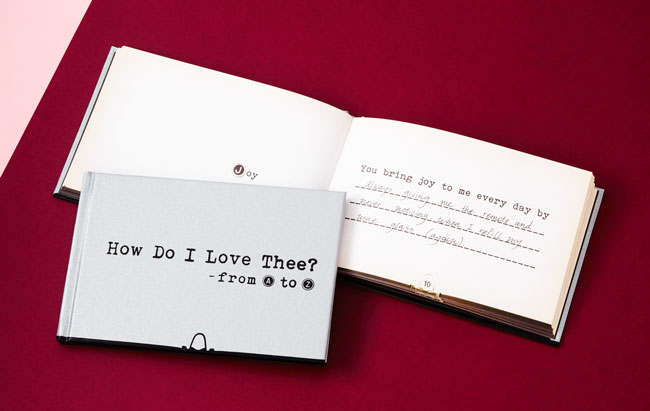 Joy
You bring joy to me every day by
Always giving me the remote and
never noticing when I refill my
wine glass (again)
10
How Do I Love Thee?
-from A to Z